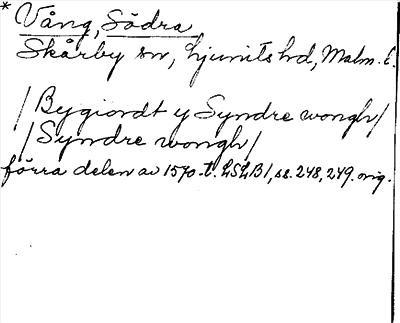 * Vång, Södra
Skårby sn, Ljunits hd, Malm. l.
/Bygiordt y Syndre wongh/
/Syndre wongh/
förra delen av 1570-t. LSLB1, ss. 248, 249. orig.